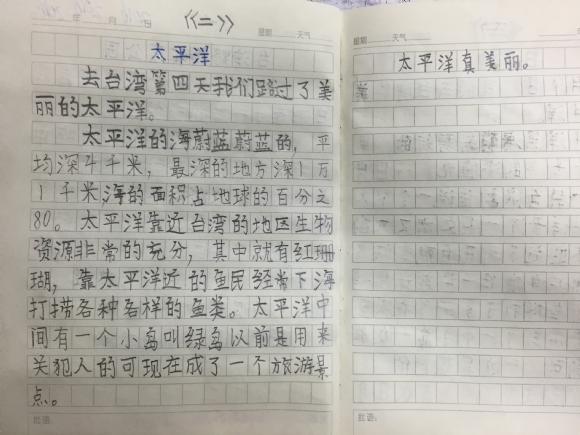 年 月 日
《二》
星期 天气
太平洋
去台湾第四天我们路过了美
丽的太平洋。
太平洋的海蔚蓝蔚蓝的，平
均深4千米，最深的地方深1万
1千米海的面积占地球的百分之
80。太平洋靠近台湾的地区生物
资源非常的充分，其中就有红珊
瑚，靠太平洋近的鱼民经常下海
打捞各种各样的鱼类。太平洋中
间有一个小岛叫绿岛以前是用来
关犯人的可现在成了一个旅游景
点。
批语：
星期 天气
太平洋真美丽。
批语：